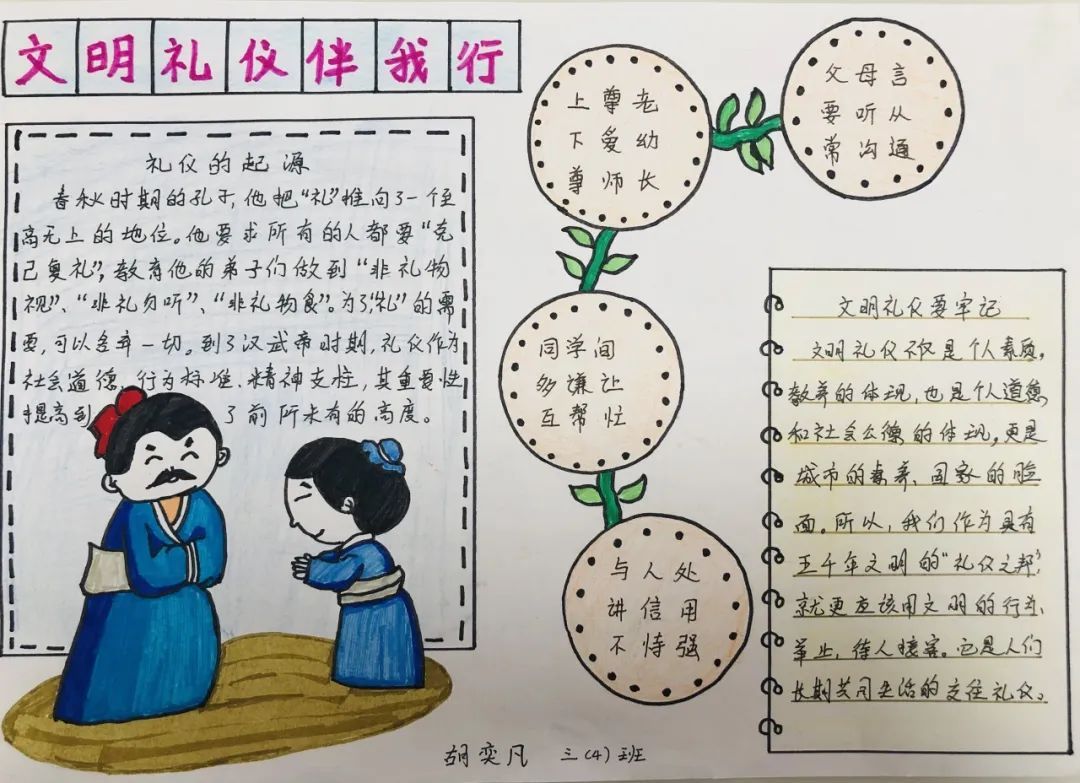 文明礼仪伴我行
礼仪的起源
春秋时期的孔子,他把“礼”推向了一个至
高无上的地位。他要求所有的人都要“克
己复礼”,教育他的弟子们做到“非礼物
视”、“非礼勿听”、“非礼物食”。为了“礼”的需
要,可以舍弃一切。到了汉武帝时期,礼仪作为
社会道德、行为标准、精神支柱,其重要性
提高到了前所未有的高度。
上尊老
下爱幼
尊师长
父母言
要听从
常沟通
同学间
多谦让
互帮忙
与人处
讲信用
不恃强
文明礼仪要牢记
文明礼仪不仅是个人素质,
教养的体现,也是个人道德
和社会公德的体现,更是
城市的素养、国家的脸
面。所以,我们作为具有
五千年文明的“礼仪之邦”,
就更应该用文明的行为、
举止,待人接客。它是人们
长期共同生活的交往礼仪。
胡奕凡 三(4)班